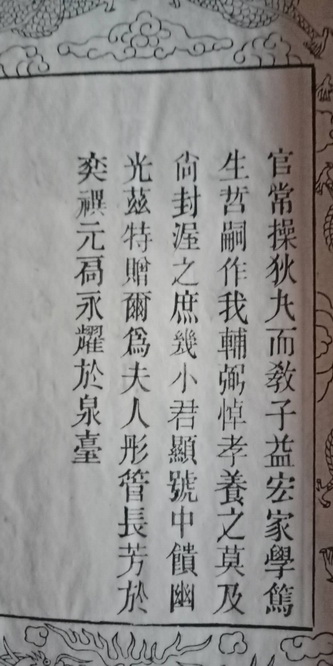 官常操狄丸而敎子益宏家學篤
生哲嗣作我輔弼悼孝養之莫及
尙封渥之庶幾小君顯號中饋幽
光茲特贈爾爲夫人彤管長芳於
奕禩元扄永耀於泉臺